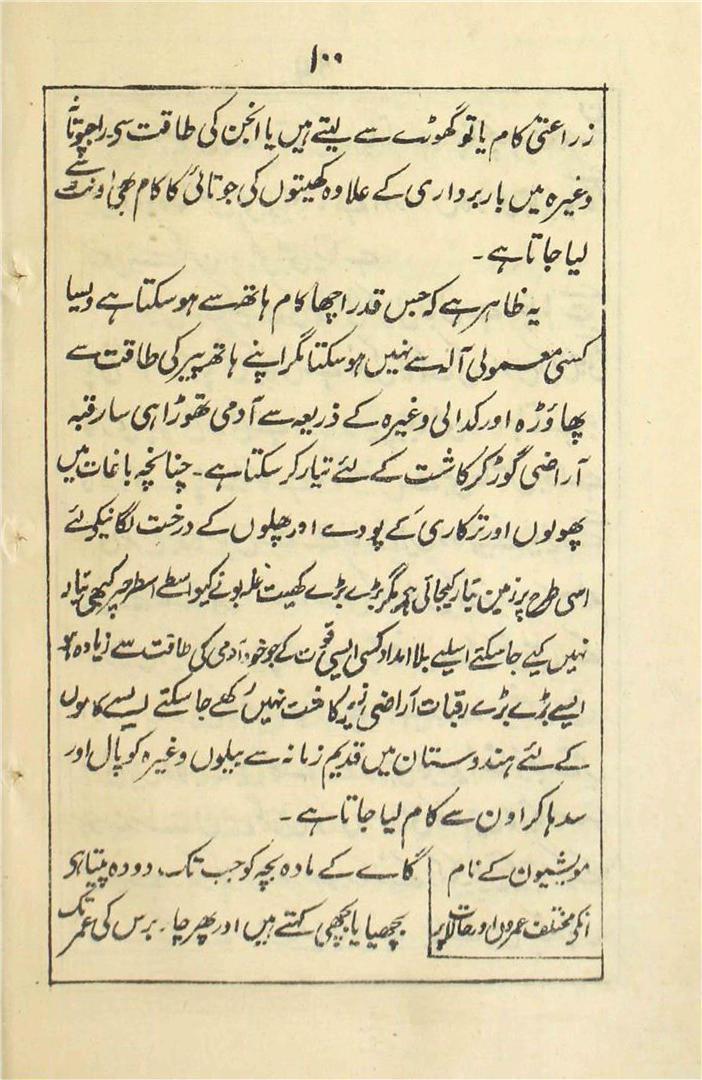 ۱۰۰
زراعتی کام یا تو گھوڑے سے لیتے ہیں یا انجن کی طاقت سی راجپوتانہ
وغیرہ میں باربرداری کے علاوہ کھیتوں کی جوتائی کا کام بھی اونٹ سے
لیا جاتا ہے ۔
یہ ظاہر ہے کہ جس قدر اچھا کام ہاتھ سے ہو سکتا ہے ویسا
کسی معمولی آلہ سے نہیں ہو سکتا مگر اپنے ہاتھ پیر کی طاقت سے
پھاؤڑہ اور کدالی وغیرہ کے ذریعہ سے آدمی تھوڑا ہی سا رقبہ
آراضی گوڑ کر کاشت کے لئے تیار کر سکتا ہے ۔ چنانچہ باغات میں
پھولوں اور ترکاری کے پودے اور پھلوں کے درخت لگانیکے لئے
اسی طرح پر زمین تیار کیجاتی ہی مگر بڑے بڑے کھیت غلہ بونے کیواسطے اسطرحپر کبھی تیار
نہیں کیے جا سکتے اسلیے بلا امداد کسی ایسی قوت کے جو خود آدمی کی طاقت سے زیادہ ہو
ایسے بڑے بڑے رقبات آراضی زیر کاشت نہیں رکھے جا سکتے ایسے کاموں
کے لئے ہندوستان میں قدیم زمانہ سے بیلوں وغیرہ کو پال اور
سدہا کر اون سے کام لیا جاتا ہے ۔
مویشیون کے نام
انکی مختلف عمرون اور حالات پر
گاے کے مادہ بچہ کو جب تک دودہ پیتا ہی
بچھیا یا بچھی کہتے ہیں اور پھر چار برس کی عمر تک